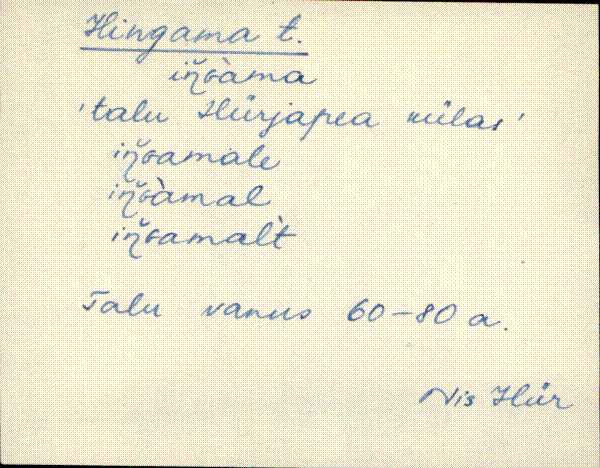 Hingama t.
iŋ̆ɢàma
'talu Hürjapea külas'
iŋ̆ɢamale
iŋ̆ɢàmal
iŋ̆ɢamal̀t
Talu vanus 60-80 a.
Nis Hür